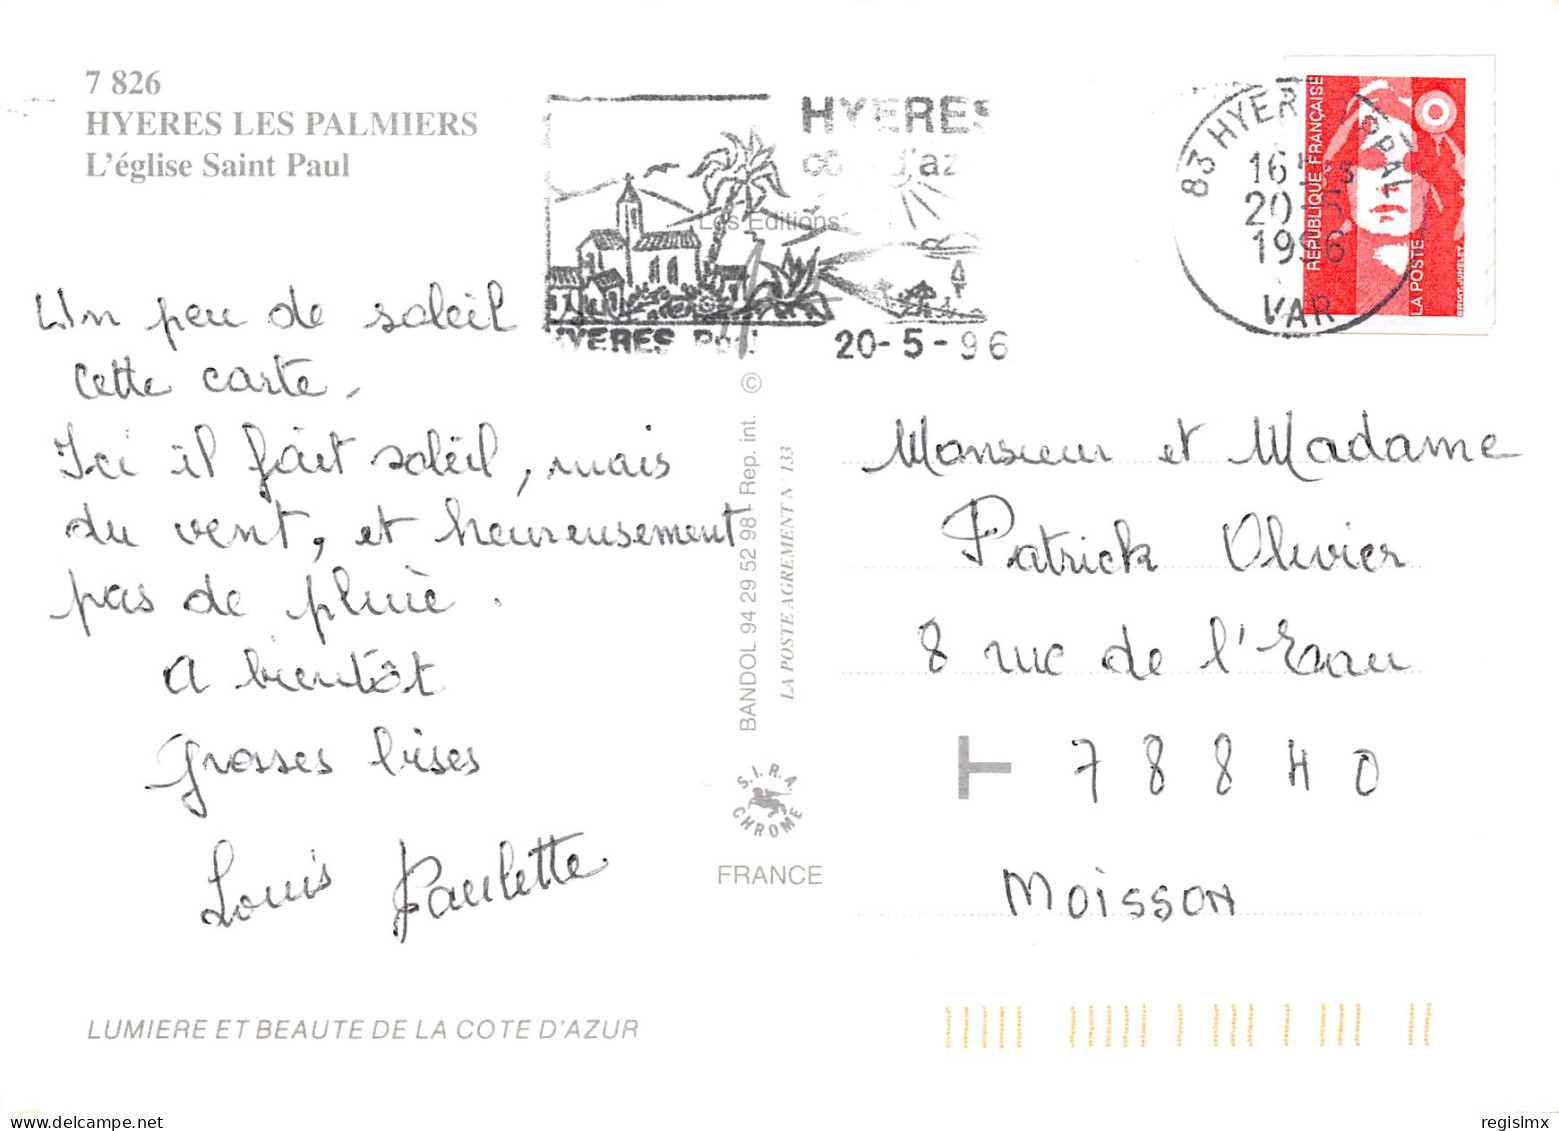 7 826
HYERES LES PALMIERS
L'église Saint Paul
HYERES
Les Editions
HYERES
20-5-96
83 HYER PPAL
16H
20-5
1996
VAR
REPUBLIQUE FRANÇAISE
LA POSTE
BRIAT-JUMELET
Un peu de soleil
cette carte,
Ici il fait soleil, mais
du vent, et heureusement
pas de pluie.
A bientôt
Grosses bises
Louis Paulette
BANDOL 94 29 52 98 - Rep. int. ©
LA POSTE AGREMENT N° 133
S.I.R.A.
CHROME
FRANCE
Monsieur et Madame
Patrick Olivier
8 rue de l'Eau
78840
Moisson
LUMIERE ET BEAUTE DE LA COTE D'AZUR
regislmx